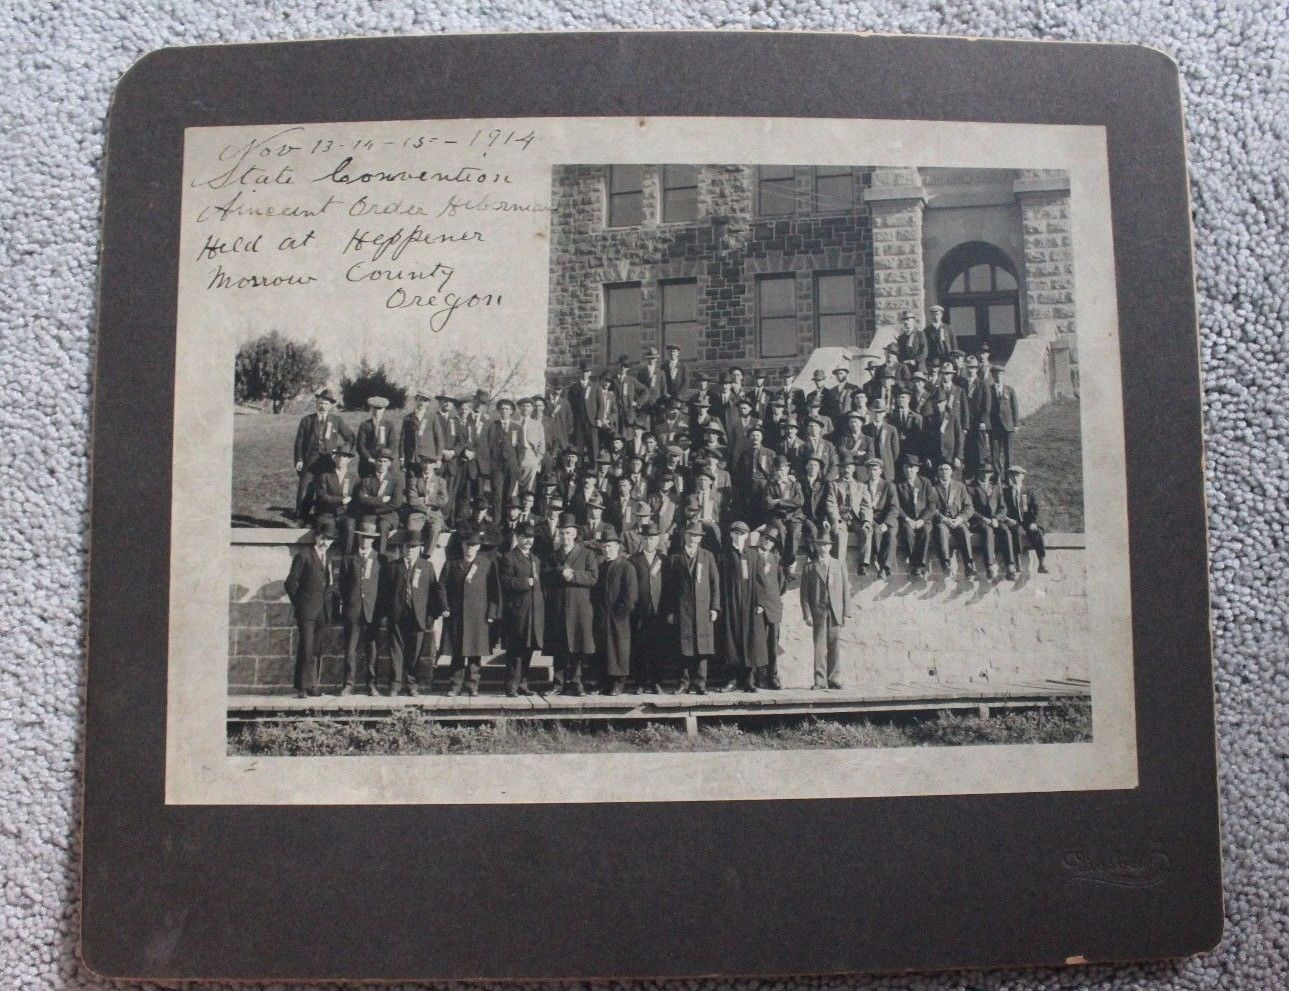 Nov 13-14-15 - 1914
State Convention
Aincent Order Hibernian
Held at Heppener
Morrow County
Oregon